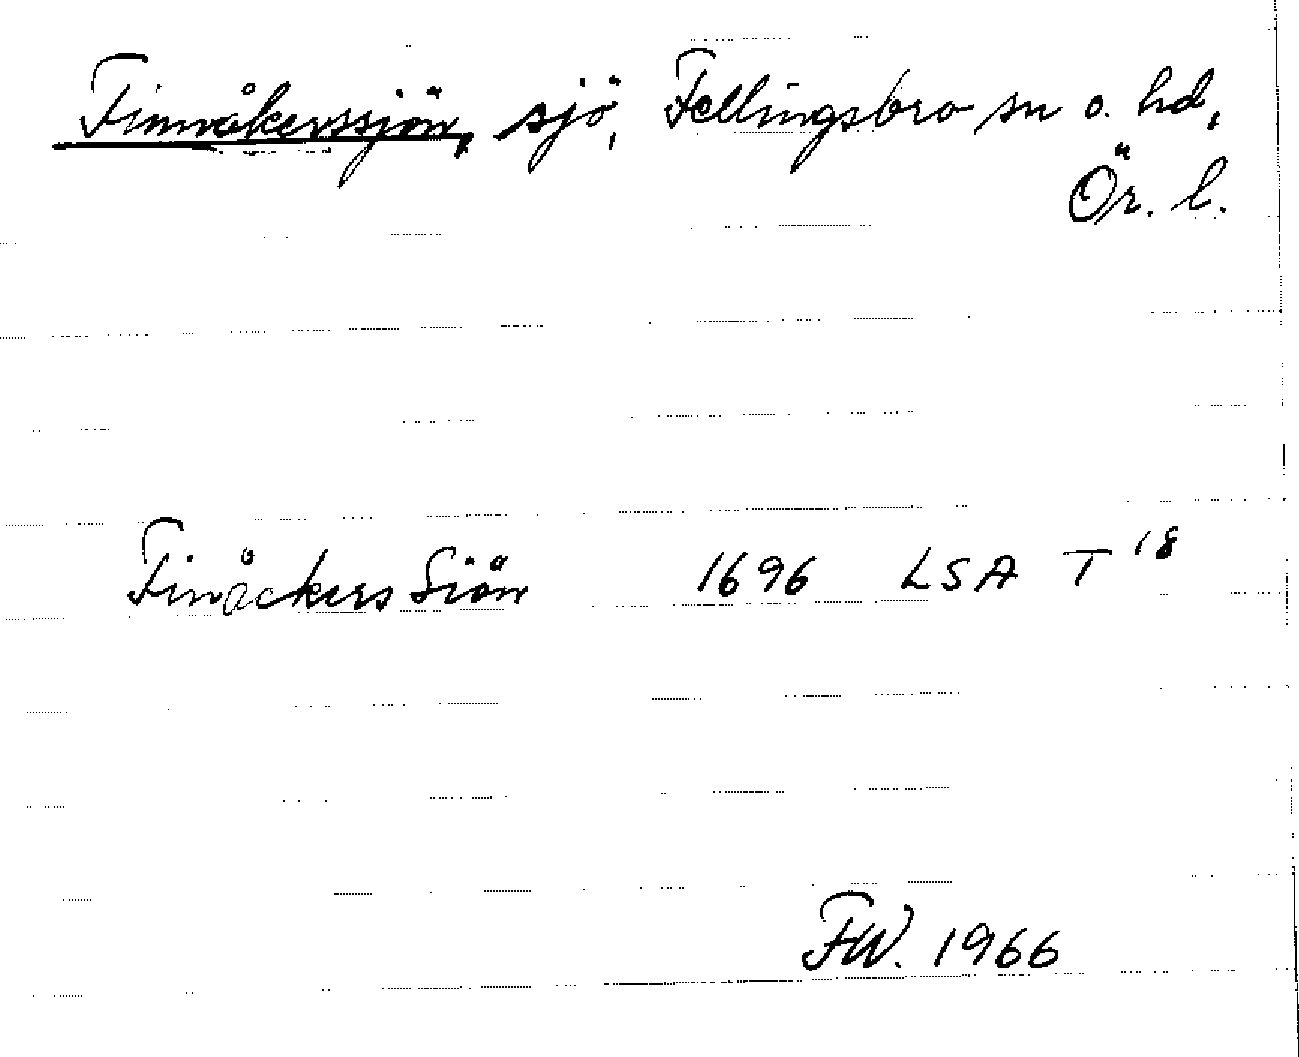 Finnåkerssjön, sjö, Fellingsbro sn o. hd,
Ör. l.
Finåckers Siön 1696 LSA T 18
FW. 1966